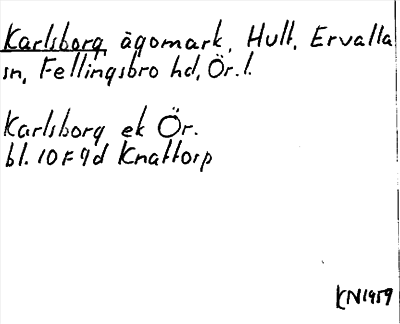 Karlsborg ägomark, Hult, Ervalla
sn, Fellingsbro hd, Ör. l.
Karlsborg ek Ör.
bl. 10 F 9d Knattorp
KN1959